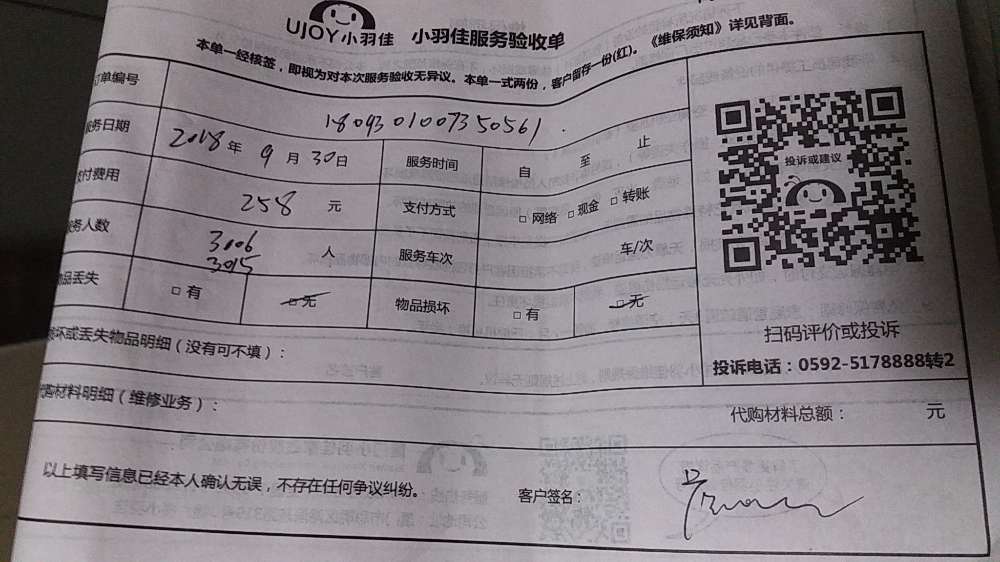 UJOY小羽佳 小羽佳服务验收单
本单一经核签，即视为对本次服务验收无异议。本单一式两份，客户留存一份(红)。《维保须知》详见背面。
订单编号 1809301007350561
服务日期 2018年9月30日 服务时间 自 至 止
支付费用 258 元 支付方式 □网络 □现金 □转账
服务人数 3106 3015 人 服务车次 车/次
物品丢失 □有 □无 物品损坏 □有 □无
投诉或建议
扫码评价或投诉
投诉电话：0592-5178888转2
损坏或丢失物品明细（没有可不填）：
代购材料明细（维修业务）： 代购材料总额： 元
以上填写信息已经本人确认无误，不存在任何争议纠纷。 客户签名：